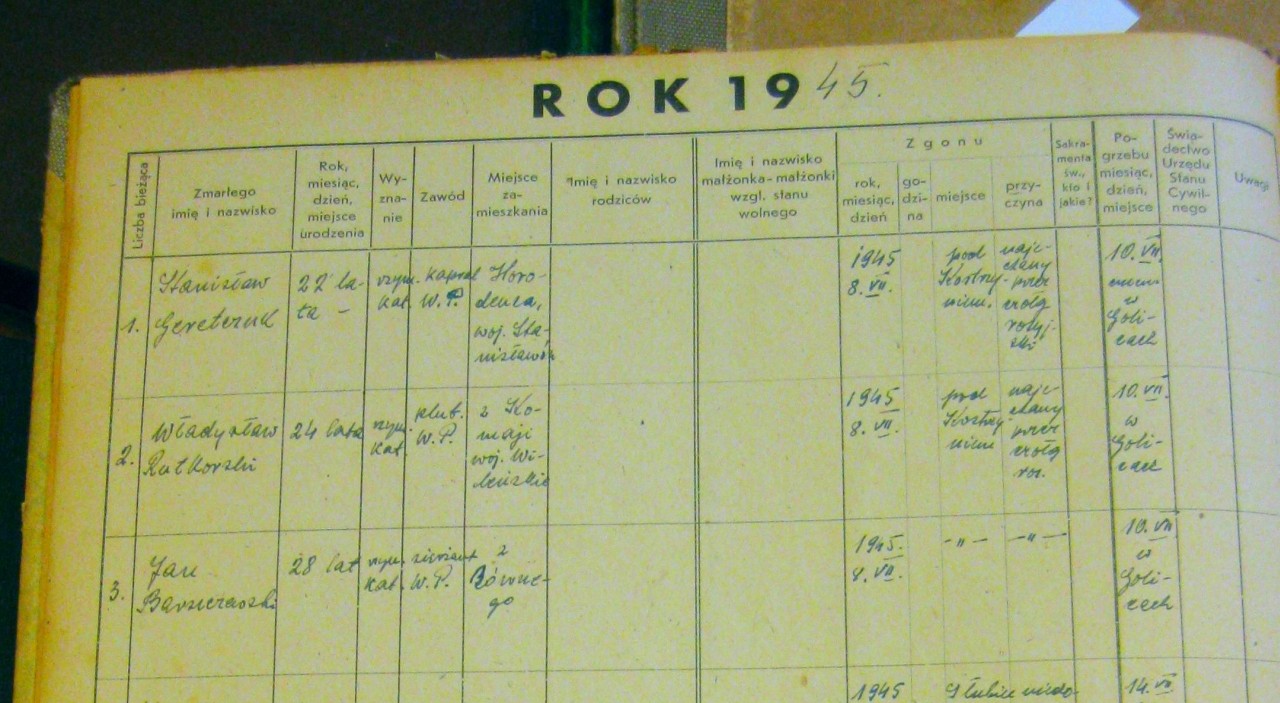 ROK 1945.
Liczba bieżąca
Zmarłego
imię i nazwisko
Rok,
miesiąc,
dzień,
miejsce
urodzenia
Wy-
zna-
nie
Zawód
Miejsce
za-
mieszkania
Imię i nazwisko
rodziców
Imię i nazwisko
małżonka-małżonki
wzgl. stanu
wolnego
Zgonu
rok,
miesiąc,
dzień
go-
dzi-
na
miejsce
przy-
czyna
Sakra-
menta
św.,
kto i
jakie?
Po-
grzebu
miesiąc,
dzień,
miejsce
Świa-
dectwo
Urzędu
Stanu
Cywil-
nego
Uwagi
1.
Stanisław
Gereteruk
22 la-
ta -
rzym.
kat.
kapral
W.P.
Horo-
denca,
woj. Sta-
nisławów
1945
8. VII.
pod
Kostrzy-
niem.
najc-
chany
przez
czołg
rosyj-
ski
10. VII.
w
Goli-
cach
2.
Władysław
Ratkorski
24 lata
rzym.
kat.
plut.
W.P.
z Ko-
maji
woj. Wi-
leńskie
1945
8. VII.
pod
Kostrzy-
niem
najc-
chany
przez
czołg
ros.
10. VII.
w
Goli-
cach
3.
Jan
28 lat
rzym.
kat.
sierżant
W.P.
z
Równe-
go
1945.
8. VII.
-„-
-„-
10. VII
w
Goli-
cach
1945
Słubice
14. VII